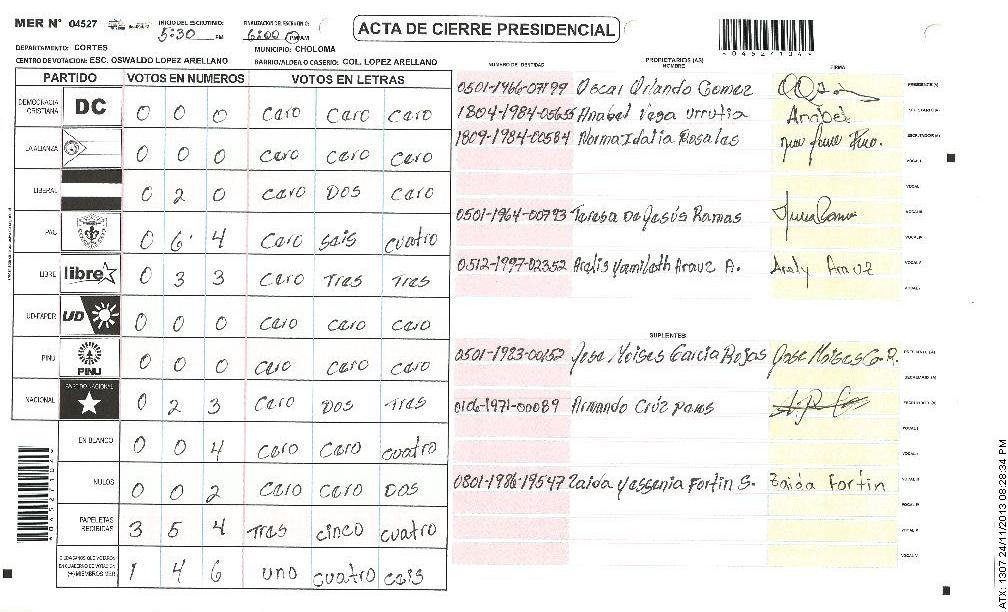 MER N° 04527
INICIO DEL ESCRUTINIO: 5:30 PM
FINALIZACION DEL ESCRUTINIO: 6:00 PM AM
ACTA DE CIERRE PRESIDENCIAL
* 0 4 5 2 7 1 3 4 *
DEPARTAMENTO: CORTES
MUNICIPIO: CHOLOMA
CENTRO DE VOTACION: ESC. OSWALDO LOPEZ ARELLANO
BARRIO/ALDEA O CASERIO: COL. LOPEZ ARELLANO
PARTIDO VOTOS EN NUMEROS VOTOS EN LETRAS
DEMOCRACIA CRISTIANA DC 0 0 0 caro caro caro
LA ALIANZA 0 0 0 caro caro caro
LIBERAL 0 2 0 caro DOS caro
PAC 0 6 4 caro sais cuatro
LIBRE libre 0 3 3 caro Tras Tras
UD-FAPER UD 0 0 0 caro caro caro
PINU PINU 0 0 0 caro caro caro
NACIONAL PARTIDO NACIONAL 0 2 3 caro DOS Tras
EN BLANCO 0 0 4 caro caro cuatro
NULOS 0 0 2 caro caro DOS
PAPELETAS RECIBIDAS 3 5 4 Tras cinco cuatro
CIUDADANOS QUE VOTARON EN CUADERNO DE VOTACION (+) MIEMBROS MER 1 4 6 uno cuatro sais
NUMERO DE IDENTIDAD
PROPIETARIOS (AS)
NOMBRE
FIRMA
0501-1966-07199 Oscar Orlando Gomez PRESIDENTE (A)
1804-1984-05655 Anabel Vega urrutia Anabel SECRETARIO (A)
1809-1984-00584 Norma Idalia Rosales ESCRUTADOR (A)
VOCAL I
VOCAL II
0501-1964-00793 Teresa De Jesús Ramas VOCAL III
VOCAL IV
0512-1997-02352 Arelis Yamileth Arauz A. Araly Arauz VOCAL V
SUPLENTES
0501-1983-00152 Jose Moises Garcia Rojas Jose Moises G. R. PRESIDENTE (A)
SECRETARIO (A)
0106-1971-00089 Armando Crúz pams ESCRUTADOR (A)
VOCAL I
0801-1986-19547 Zaida yessenia Fortin S. Zaida Fortín VOCAL III
VOCAL IV
VOCAL V
ATX: 1307 24/11/2013 08:28:34 PM